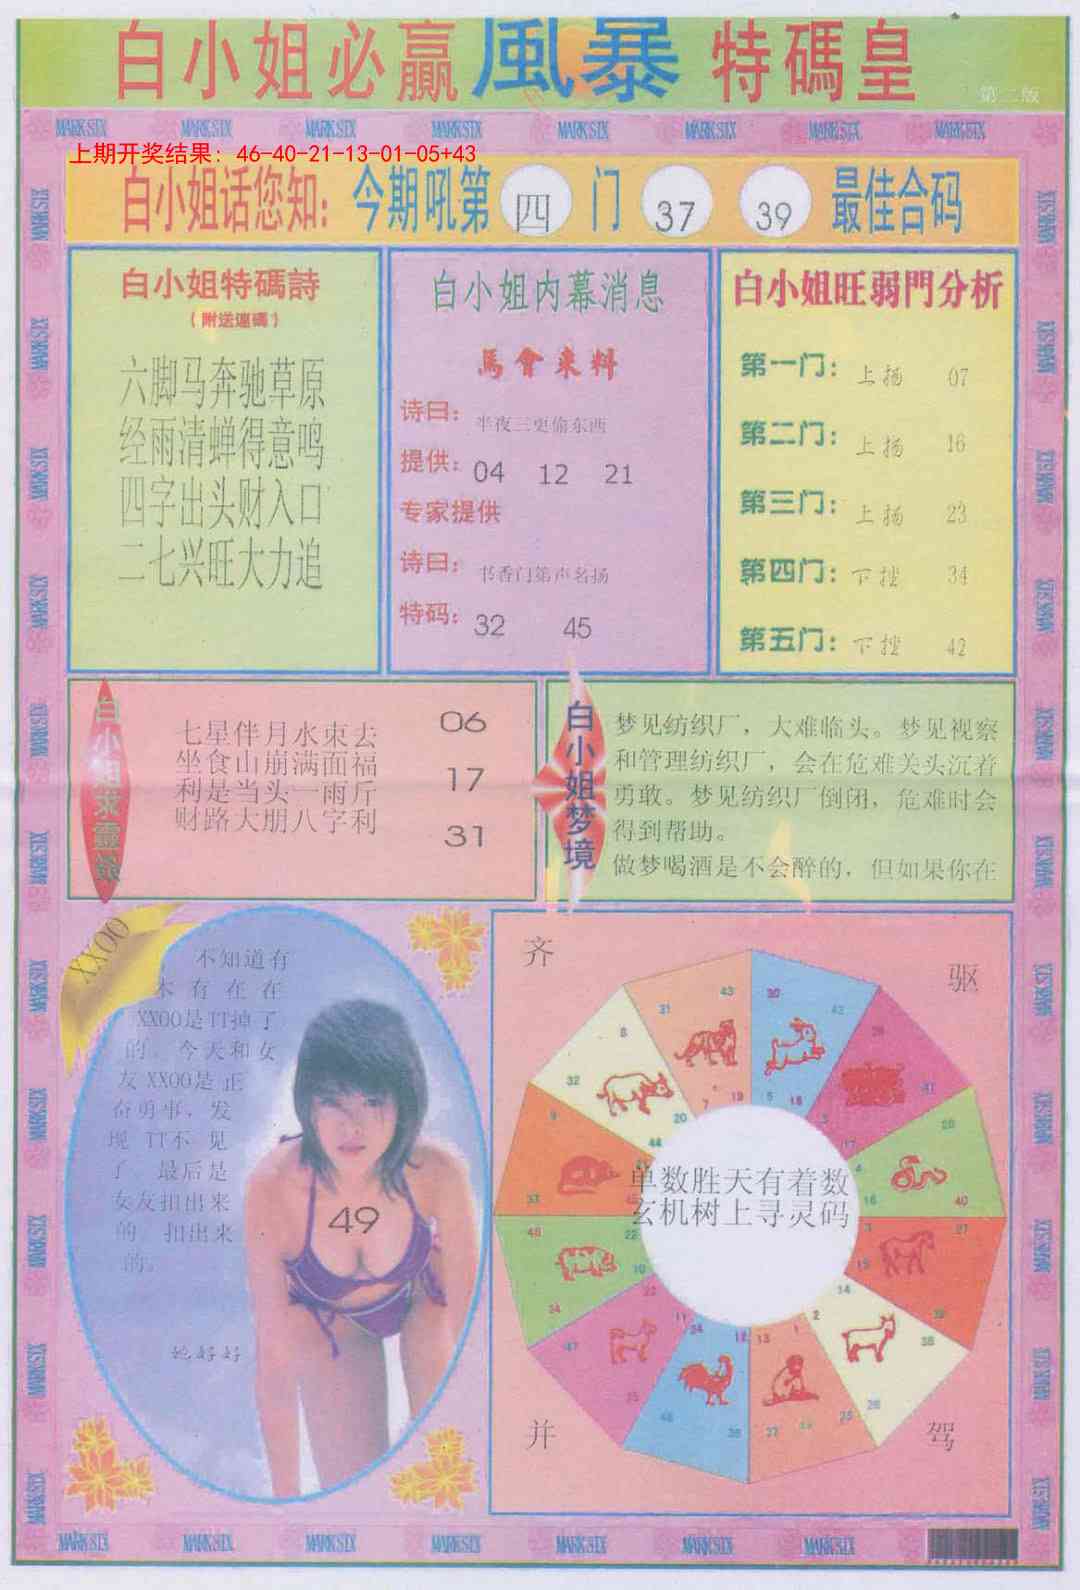 白小姐必贏 風暴 特碼皇
第二版
MARK SIX MARK SIX MARK SIX MARK SIX MARK SIX MARK SIX MARK SIX MARK SIX
上期开奖结果：46-40-21-13-01-05+43
白小姐话您知：今期吼第 四 门 37 39 最佳合码
白小姐特碼詩
（附送連碼）
六脚马奔驰草原
经雨清蝉得意鸣
四字出头财入口
二七兴旺大力追
白小姐内幕消息
馬會来料
诗曰：半夜三更偷东西
提供：04 12 21
专家提供
诗曰：书香门第声名扬
特码：32 45
白小姐旺弱門分析
第一门：上扬 07
第二门：上扬 16
第三门：上扬 23
第四门：下挫 34
第五门：下挫 42
七星伴月水東去
坐食山崩满面福
利是当头一雨斤
财路大朋八字利
06
17
31
白小姐梦境
梦见纺织厂，大难临头。梦见视察
和管理纺织厂，会在危难关头沉着
勇敢。梦见纺织厂倒闭，危难时会
得到帮助。
做梦喝酒是不会醉的，但如果你在
XXOO
不知道有
木 有 在 在
XXOO是TT掉了
的。今天和女
友 XXOO是 正
奋勇事，发
现 TT不 见
了 最后是
女友扣出来
的 扣出来
的。
49
她好好
齐
驱
单数胜天有着数
玄机树上寻灵码
并
驾
MARK SIX MARK SIX MARK SIX MARK SIX MARK SIX MARK SIX MARK SIX